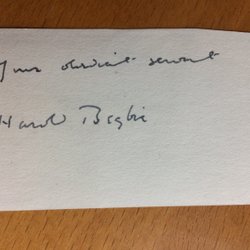 Your obedient servant
Harold Begbie